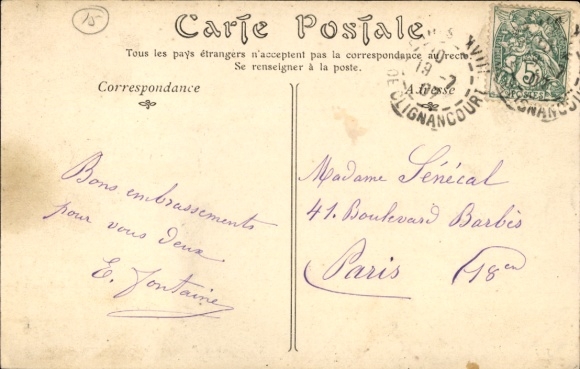 15
Carte Postale
Tous les pays étrangers n'acceptent pas la correspondance au recto.
Se renseigner à la poste.
Correspondance
Adresse
XVIII
19 -7
DE CLIGNANCOURT
5
Bons embrassements
pour vous deux
E. Fontaine
Madame Sénécal
41. Boulevard Barbès
Paris (18en